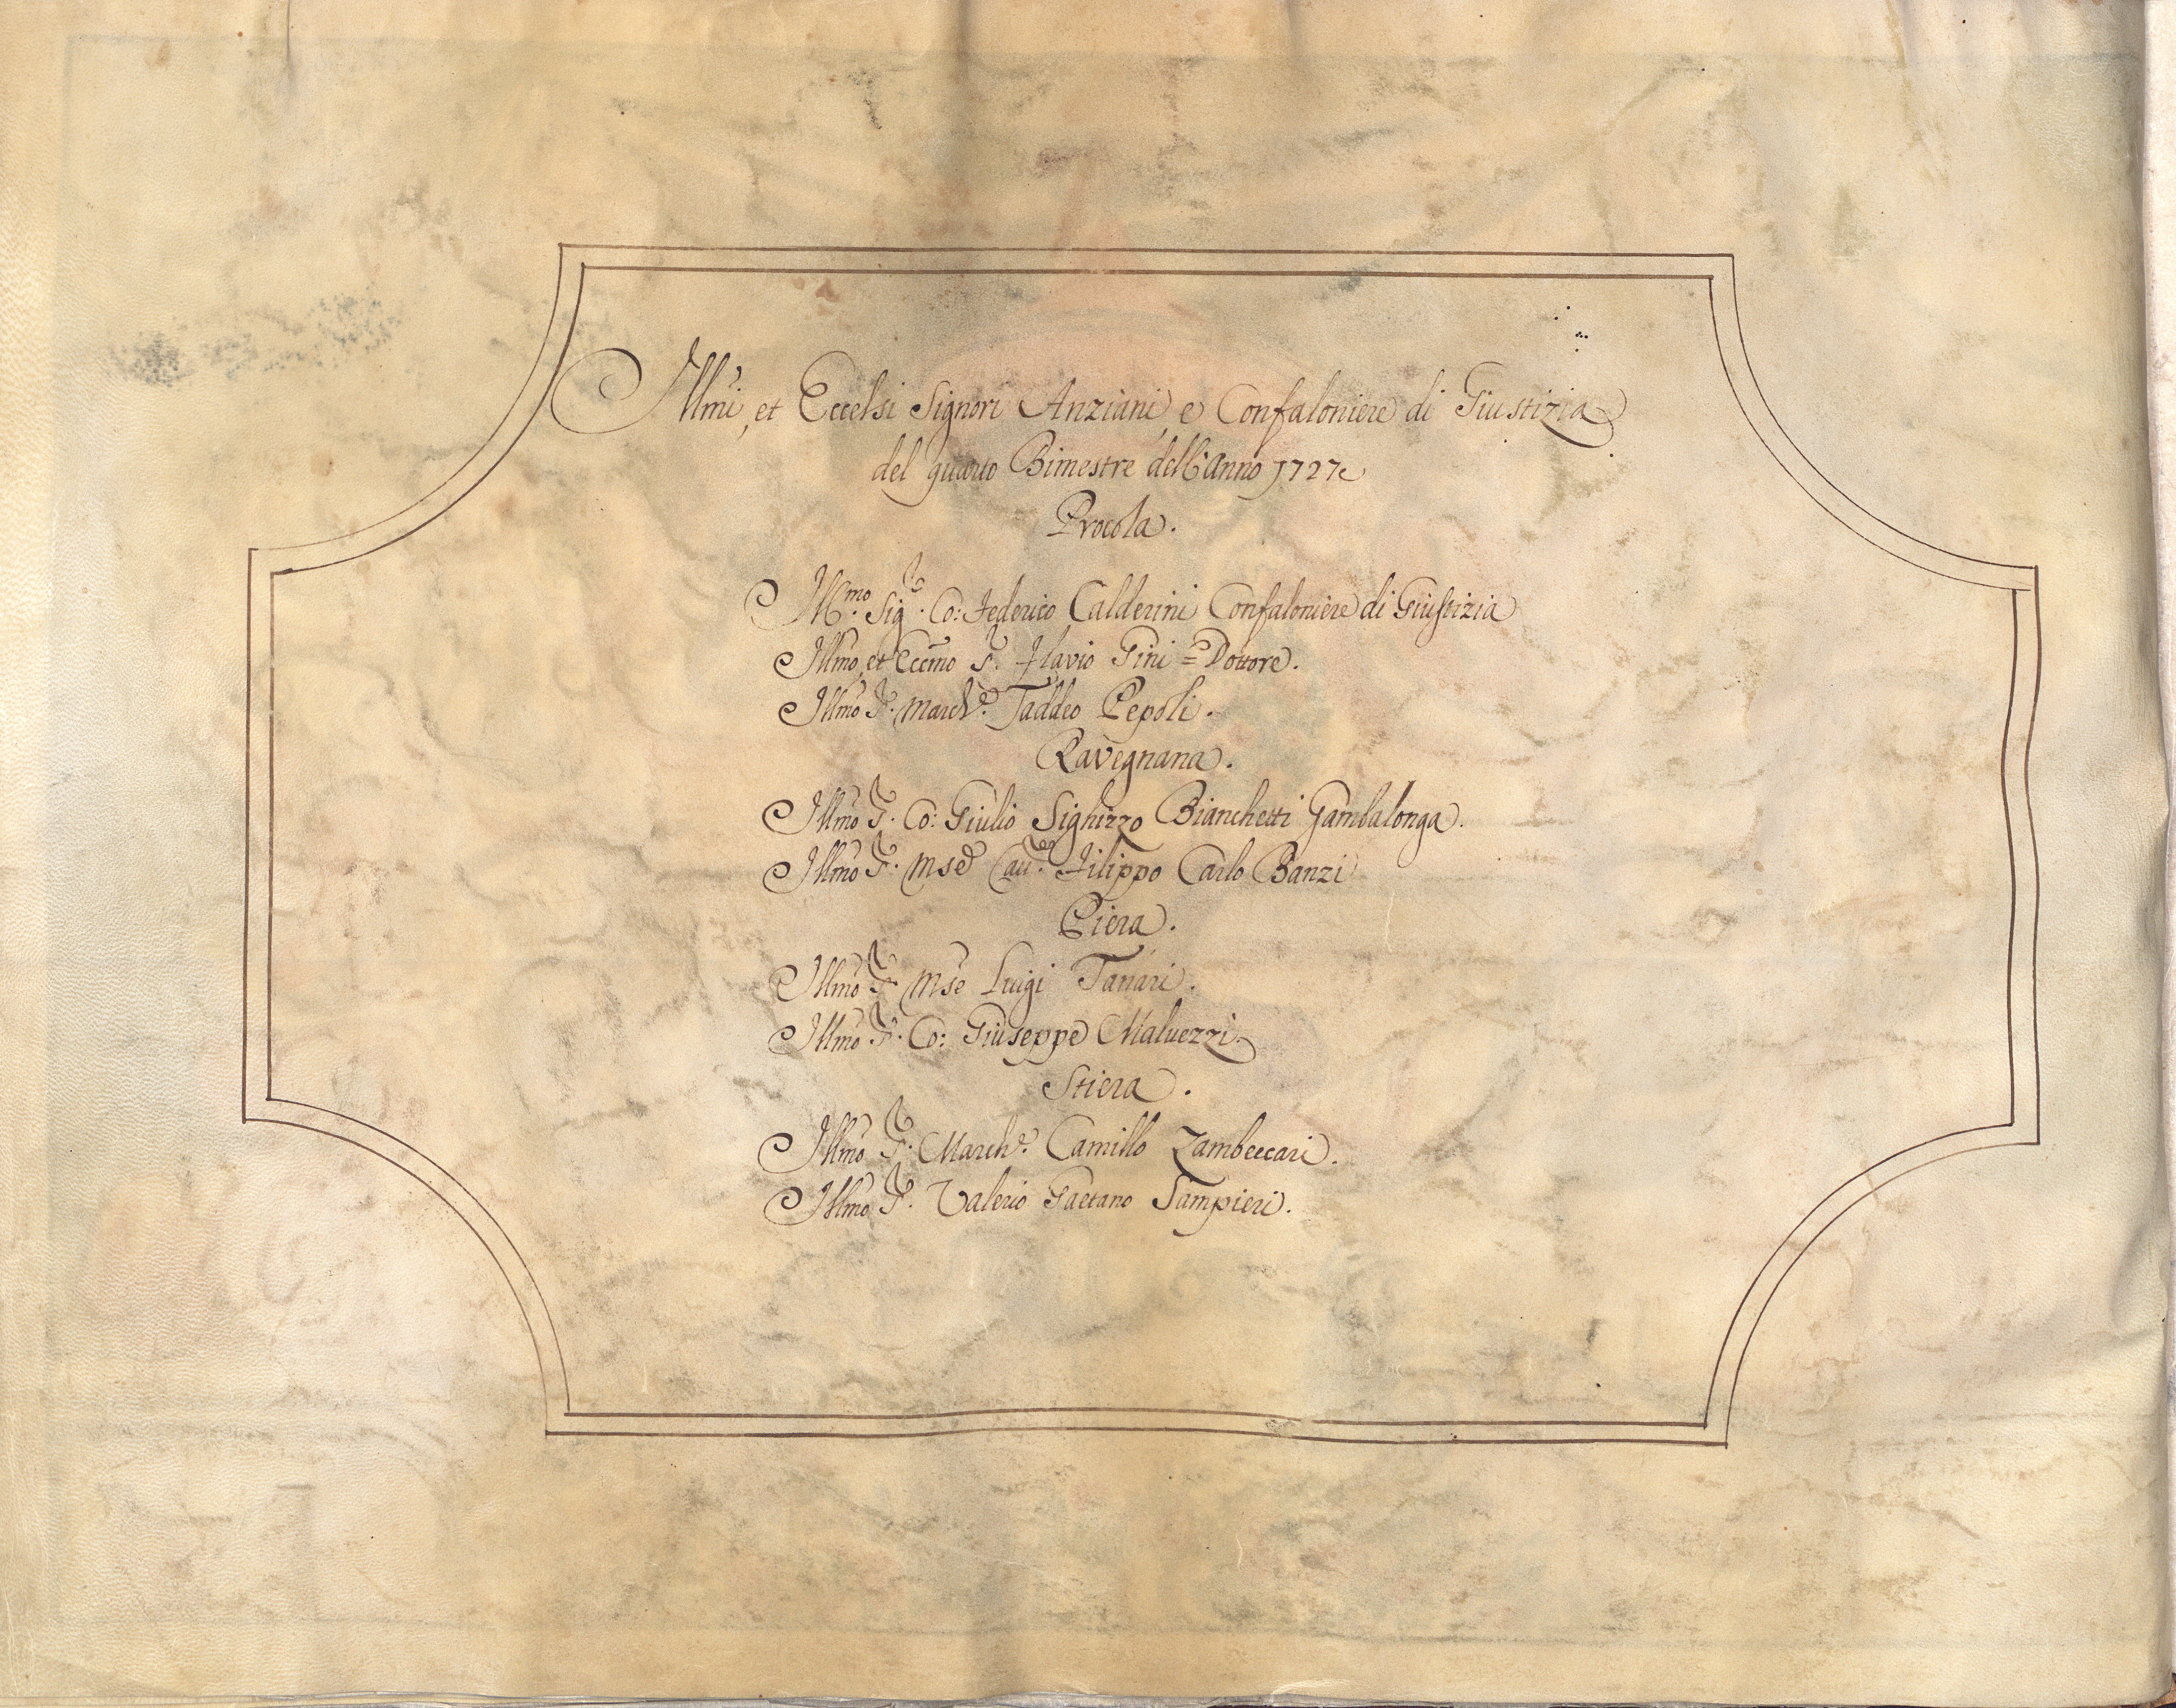 Illmi, et Eccelsi Signori Anziani, e Confaloniere di Giustizia
del quarto Bimestre dell'anno 1727
Procola.
Ill.mo Sig.r Co: Federico Calderini Confaloniere di Giustizia
Illmo, et Eccmo S.r Flavio Gini = Dottore.
Illmo S.r March.e Taddeo Pepoli.
Ravegnana.
Illmo S.r Co: Giulio Sighizzo Bianchetti Gambalonga.
Illmo S.r Mse Cau.r Filippo Carlo Banzi
Piera.
Illmo S.r Mse Luigi Tanari.
Illmo S.r Co: Giuseppe Maluezzi.
Stiera.
Illmo S.r March.e Camillo Zambeccari.
Illmo S.r Valerio Gaetano Sampieri.